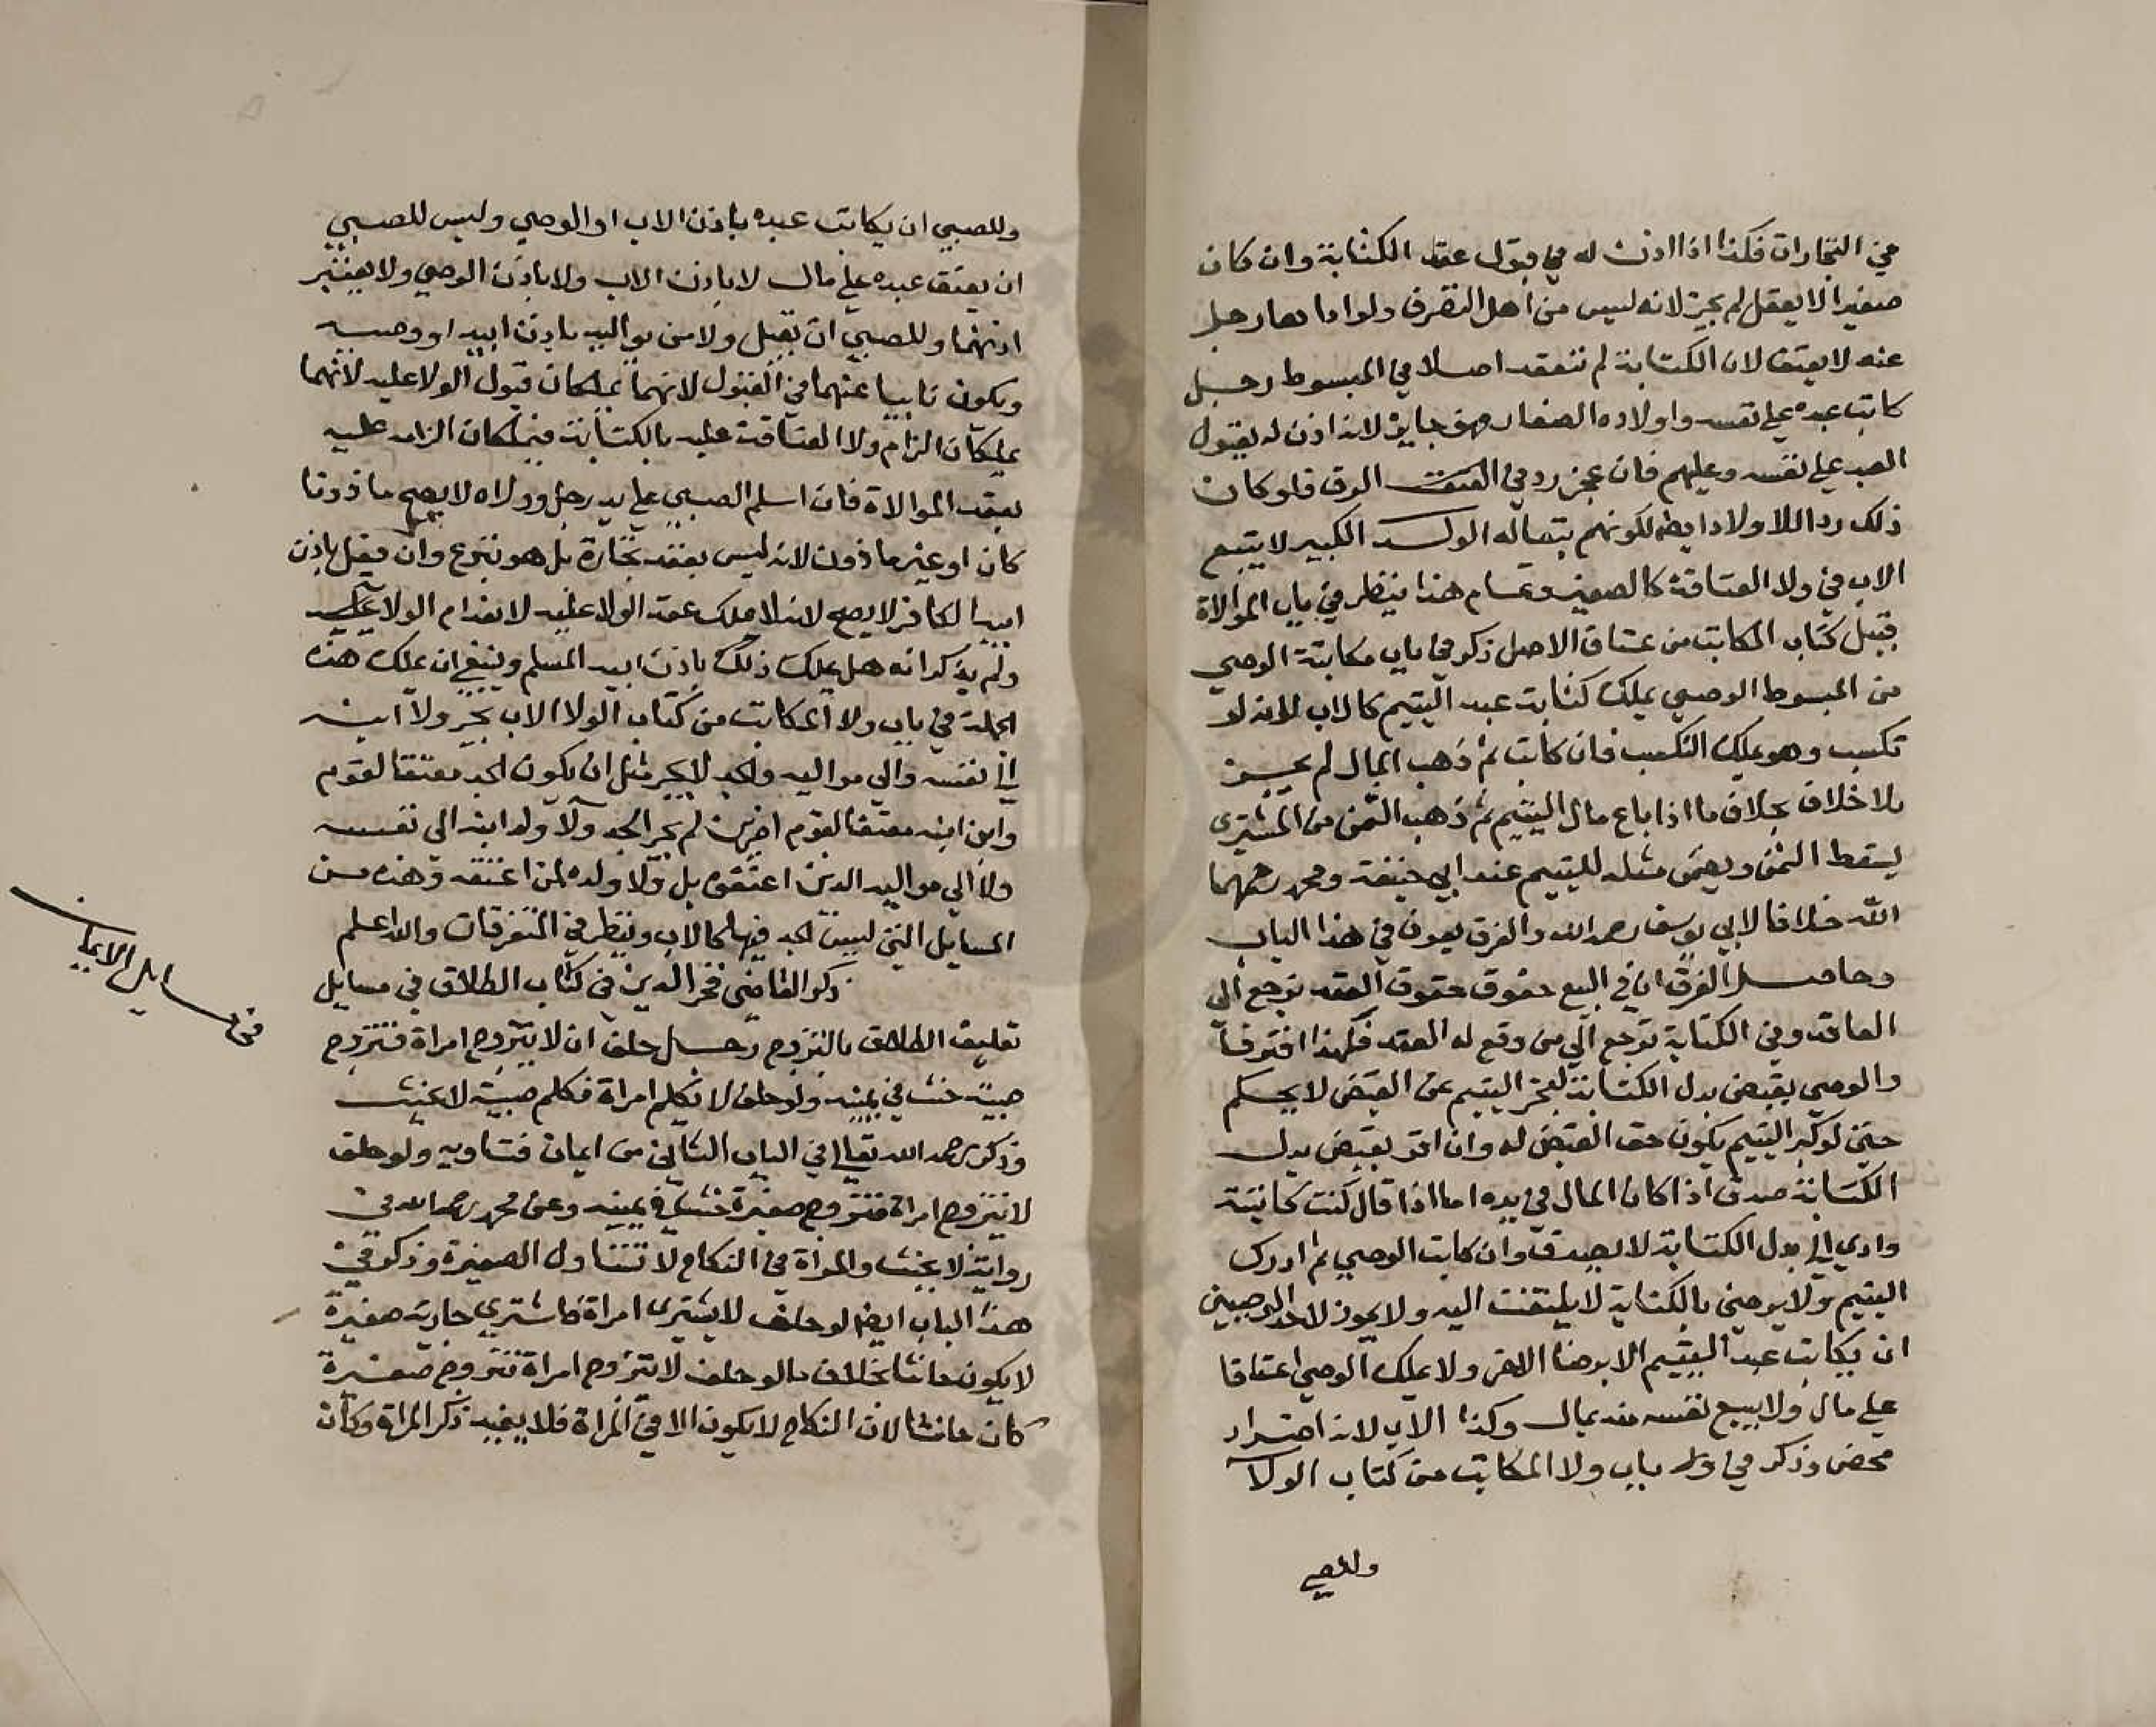 في التجارات فكذا اذا اذن له في قبول عقد الكتابة وان كان
صغيرا لا يعقل لم يجز لانه ليس من اهل التصرف ولو اداها رجل
عنه لا يعتق لان الكتابة لم تنعقد اصلا في المبسوط رجل
كاتب عبده على نفسه واولاده الصغار فهو جايز لانه اذن له بقبول
العبد على نفسه وعليهم فان عجز رد في الرق فلو كان
ذلك ردا للاولاد ايضا لكونهم تبعا له الولد الكبير لا يتبع
الاب في ولا العتاقة كالصغير وتمام هذا ينظر في باب الموالاة
قبيل كتاب المكاتب من عتاق الاصل ذكر في باب مكاتبة الوصي
من المبسوط الوصي يملك كتابت عبد اليتيم كالاب لانه
تكسب وهو يملك التكسب فان كاتب ثم وهب المال لم يجز
بلا خلاف بخلاف ما اذا باع مال اليتيم ثم وهب الثمن من المشتري
يسقط الثمن ويضمن مثله لليتيم عند ابي حنيفة ومحمد رحمهما
الله خلافا لابي يوسف رحمه الله والفرق يعرف في هذا الباب
وحاصل الفرق ان في البيع حقوق حقوق العقد ترجع الى
العاقد وفي الكتابة ترجع الى من وقع له العقد فلهذا افترقا
والوصي يقبض بدل الكتابة لعجز اليتيم عن القبض لا بحكم
حتى لو كبر اليتيم يكون حق القبض له وان اقر بقبض بدل
الكتابة صدق اذا كان المال في يده اما اذا قال كنت كاتبته
وادي الي بدل الكتابة لا يصدق وان كاتب الوصي ثم ادرك
اليتيم ولا يرضى بالكتابة لا يلتفت اليه ولا يجوز لاحد الوصيين
ان يكاتب عبد اليتيم الا برضا الاخر ولا يملك الوصي اعتاقا
على مال ولا يبيع نفسه منه بمال وكذا الاب لانه اضرار
محض وذكر في باب ولا المكاتب من كتاب الولا
وللصبي
وللصبي ان يكاتب عبده باذن الاب او الوصي وليس للصبي
ان يعتق عبده على مال لا باذن الاب ولا باذن الوصي ولا يعتبر
اذنهما وللصبي ان يقبل ولا من يواليه باذن ابيه او وصيه
ويكون نايبا عنهما في القبول لانهما يملكان قبول الولا عليه لانهما
يملكان الزام ولا العتاقة عليه بالكتابة فيملكان الزامه عليه
بعقد الموالاة فان اسلم الصبي على يد رجل ووالاه لا يصح ماذونا
كان او غير ماذون لانه ليس بعقد تجارة بل هو تبرع وان فعل باذن
ابيه الكافر لا يصح لانه لا يملك عقد الولا عليه لانعدام الولا عليه
ولم يذكر انه هل يملك ذلك باذن ابيه المسلم وينبغي ان يملك هذه
الجملة في باب ولا المكاتب من كتاب الولا الاب يجر ولا ابنه
الى نفسه والى مواليه والجد لا يجر مثل ان يكون الجد معتقا لقوم
وابن ابنه معتقا لقوم اخرين لم يجر الجد ولا ولد ابنه الى نفسه
ولا الى مواليه الذين اعتقوه بل ولا ولده لمن اعتقه وهذه من
المسايل التي ليس الجد فيها كالاب وينظر في المتفرقات والله اعلم
ذكر القاضي فخر الدين في كتاب الطلاق في مسايل
تعليق الطلاق بالتزوج رجل حلف ان لا يتزوج امراة فتزوج
صبية حنث في يمينه ولو حلف لا يكلم امراة فكلم صبية لا يحنث
وذكر رحمه الله تعالى في الباب الثاني من ايمان فتاويه ولو حلف
لا يتزوج امراة فتزوج صغيرة حنث في يمينه وعن محمد رحمه الله في
رواية لا يحنث والمراة في النكاح لا تتناول الصغيرة وذكر في
هذا الباب ايضا لو حلف لا يشتري امراة فاشترى جارية صغيرة
لا يكون حانثا بخلاف ما لو حلف لا يتزوج امراة فتزوج صغيرة
كان حانثا لان النكاح لا يكون الا في المراة فلا يفيد ذكر المراة وكان
في مسايل الايمان